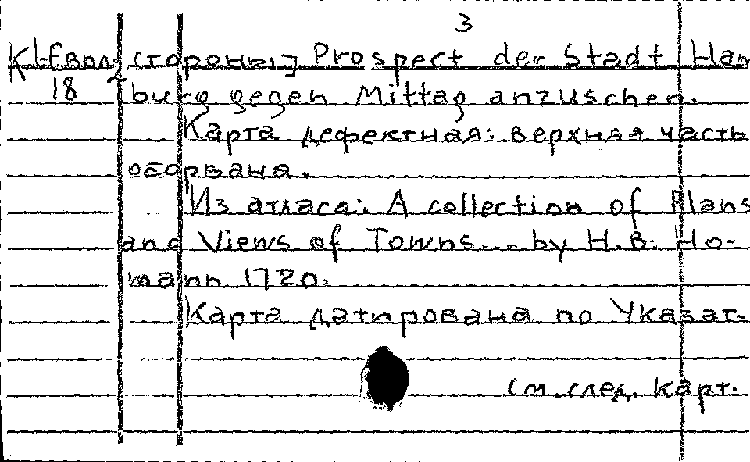 3
К1-Евол стороны] Prospect der Stadt Ham
18 burg gegen Mittag anzuschen.
Карта дефектная: верхная часть
оборвана.
Из атласа: A collection of Plans
and Views of Towns... by H.B. Ho-
mann 1720.
Карта датирована по Указат.
см. след. карт.